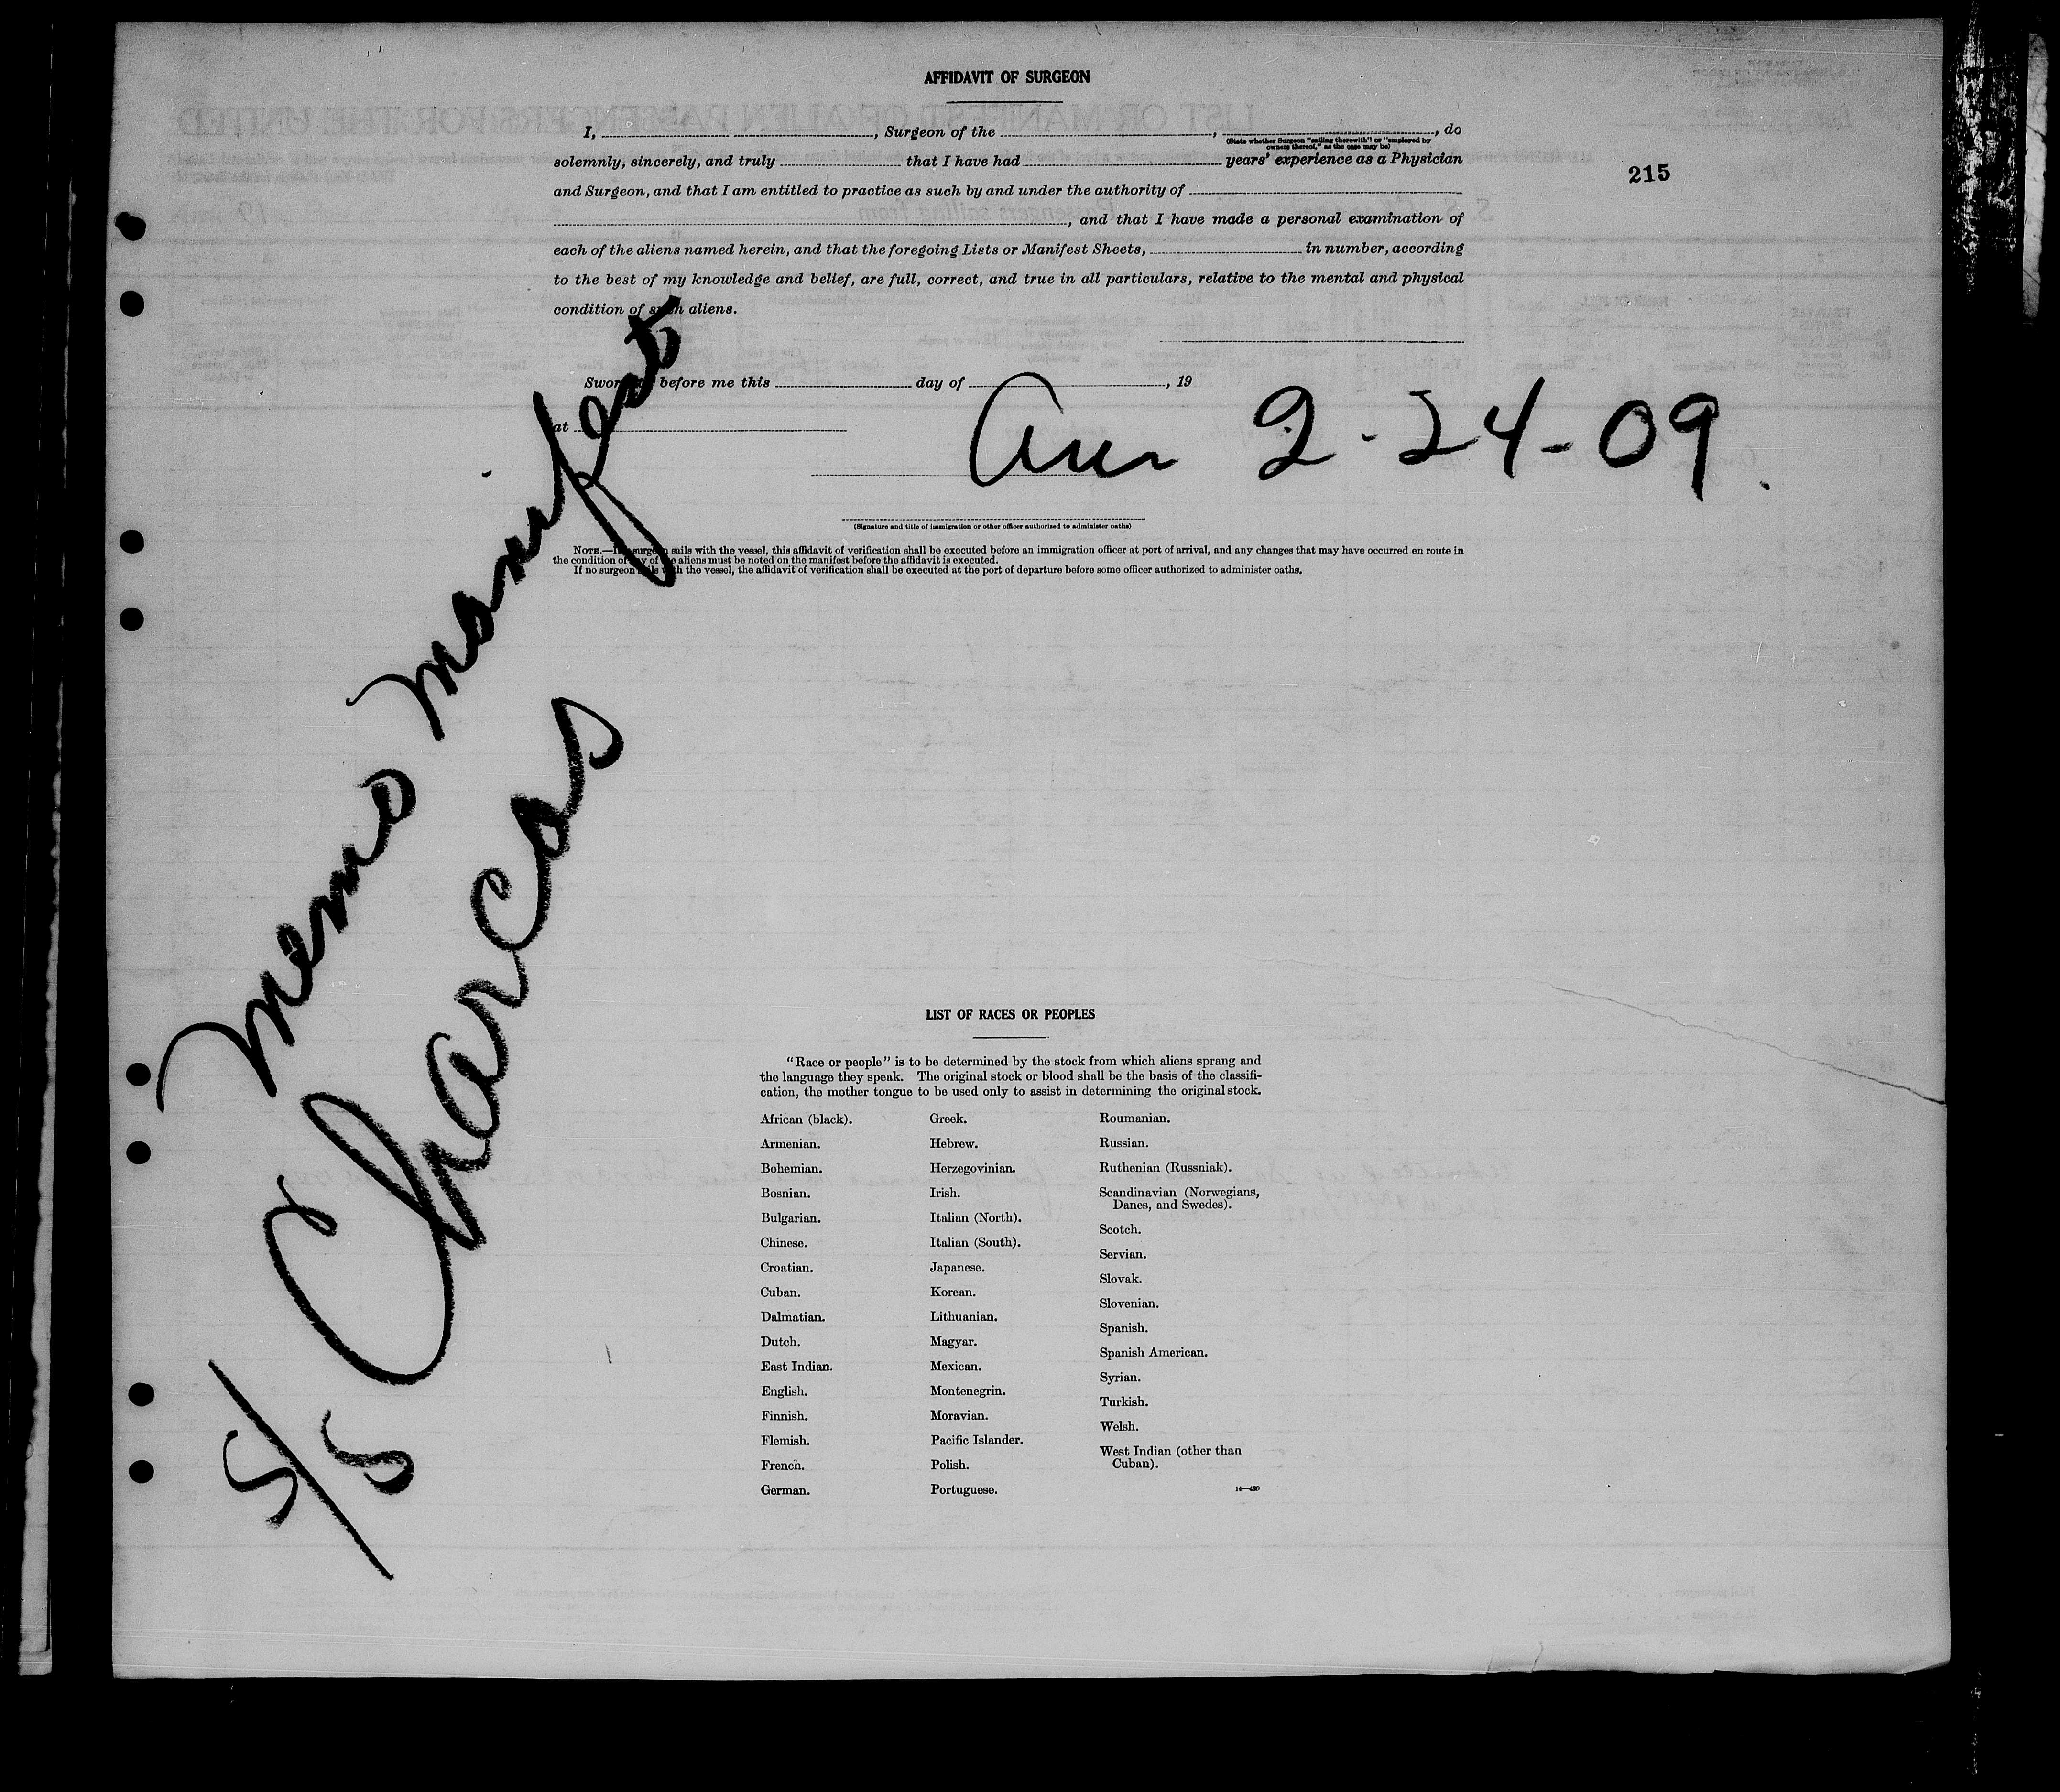 AFFIDAVIT OF SURGEON
I, , Surgeon of the , , do
(State whether Surgeon "sailing therewith" or "employed by
owners thereof," as the case may be)
solemnly, sincerely, and truly that I have had years' experience as a Physician
215
and Surgeon, and that I am entitled to practice as such by and under the authority of
, and that I have made a personal examination of
each of the aliens named herein, and that the foregoing Lists or Manifest Sheets, in number, according
to the best of my knowledge and belief, are full, correct, and true in all particulars, relative to the mental and physical
condition of such aliens.
Sworn to before me this day of , 19
at
Arr 2-24-09.
(Signature and title of immigration or other officer authorized to administer oaths)
NOTE.—If a surgeon sails with the vessel, this affidavit of verification shall be executed before an immigration officer at port of arrival, and any changes that may have occurred en route in
the condition of any of the aliens must be noted on the manifest before the affidavit is executed.
If no surgeon sails with the vessel, the affidavit of verification shall be executed at the port of departure before some officer authorized to administer oaths.
Memo Manifest
S/S Charcas
LIST OF RACES OR PEOPLES
"Race or people" is to be determined by the stock from which aliens sprang and
the language they speak. The original stock or blood shall be the basis of the classifi-
cation, the mother tongue to be used only to assist in determining the original stock.
African (black).
Armenian.
Bohemian.
Bosnian.
Bulgarian.
Chinese.
Croatian.
Cuban.
Dalmatian.
Dutch.
East Indian.
English.
Finnish.
Flemish.
French.
German.
Greek.
Hebrew.
Herzegovinian.
Irish.
Italian (North).
Italian (South).
Japanese.
Korean.
Lithuanian.
Magyar.
Mexican.
Montenegrin.
Moravian.
Pacific Islander.
Polish.
Portuguese.
Roumanian.
Russian.
Ruthenian (Russniak).
Scandinavian (Norwegians,
Danes, and Swedes).
Scotch.
Servian.
Slovak.
Slovenian.
Spanish.
Spanish American.
Syrian.
Turkish.
Welsh.
West Indian (other than
Cuban).
14—430